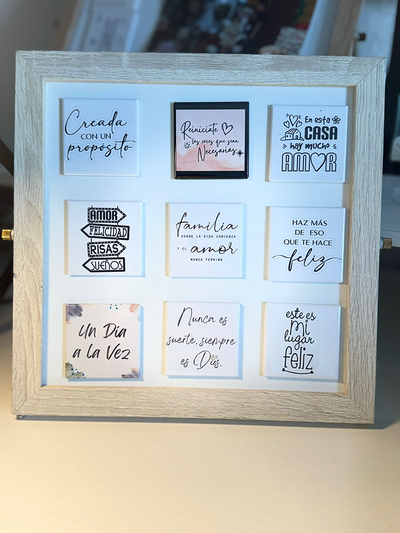 Creada
CON UN
propósito
Reiniciate
las veces que sean
Necesarias
En esta
CASA
hay mucho
AMOR
AMOR
FELICIDAD
RISAS
SUEÑOS
familia
DONDE LA VIDA COMIENZA
Y EL amor
NUNCA TERMINA
HAZ MÁS
DE ESO
QUE TE HACE
feliz
Un Dia
a la Vez
Nunca es
suerte, siempre
es Dios.
este es
Mi
lugar
feliz